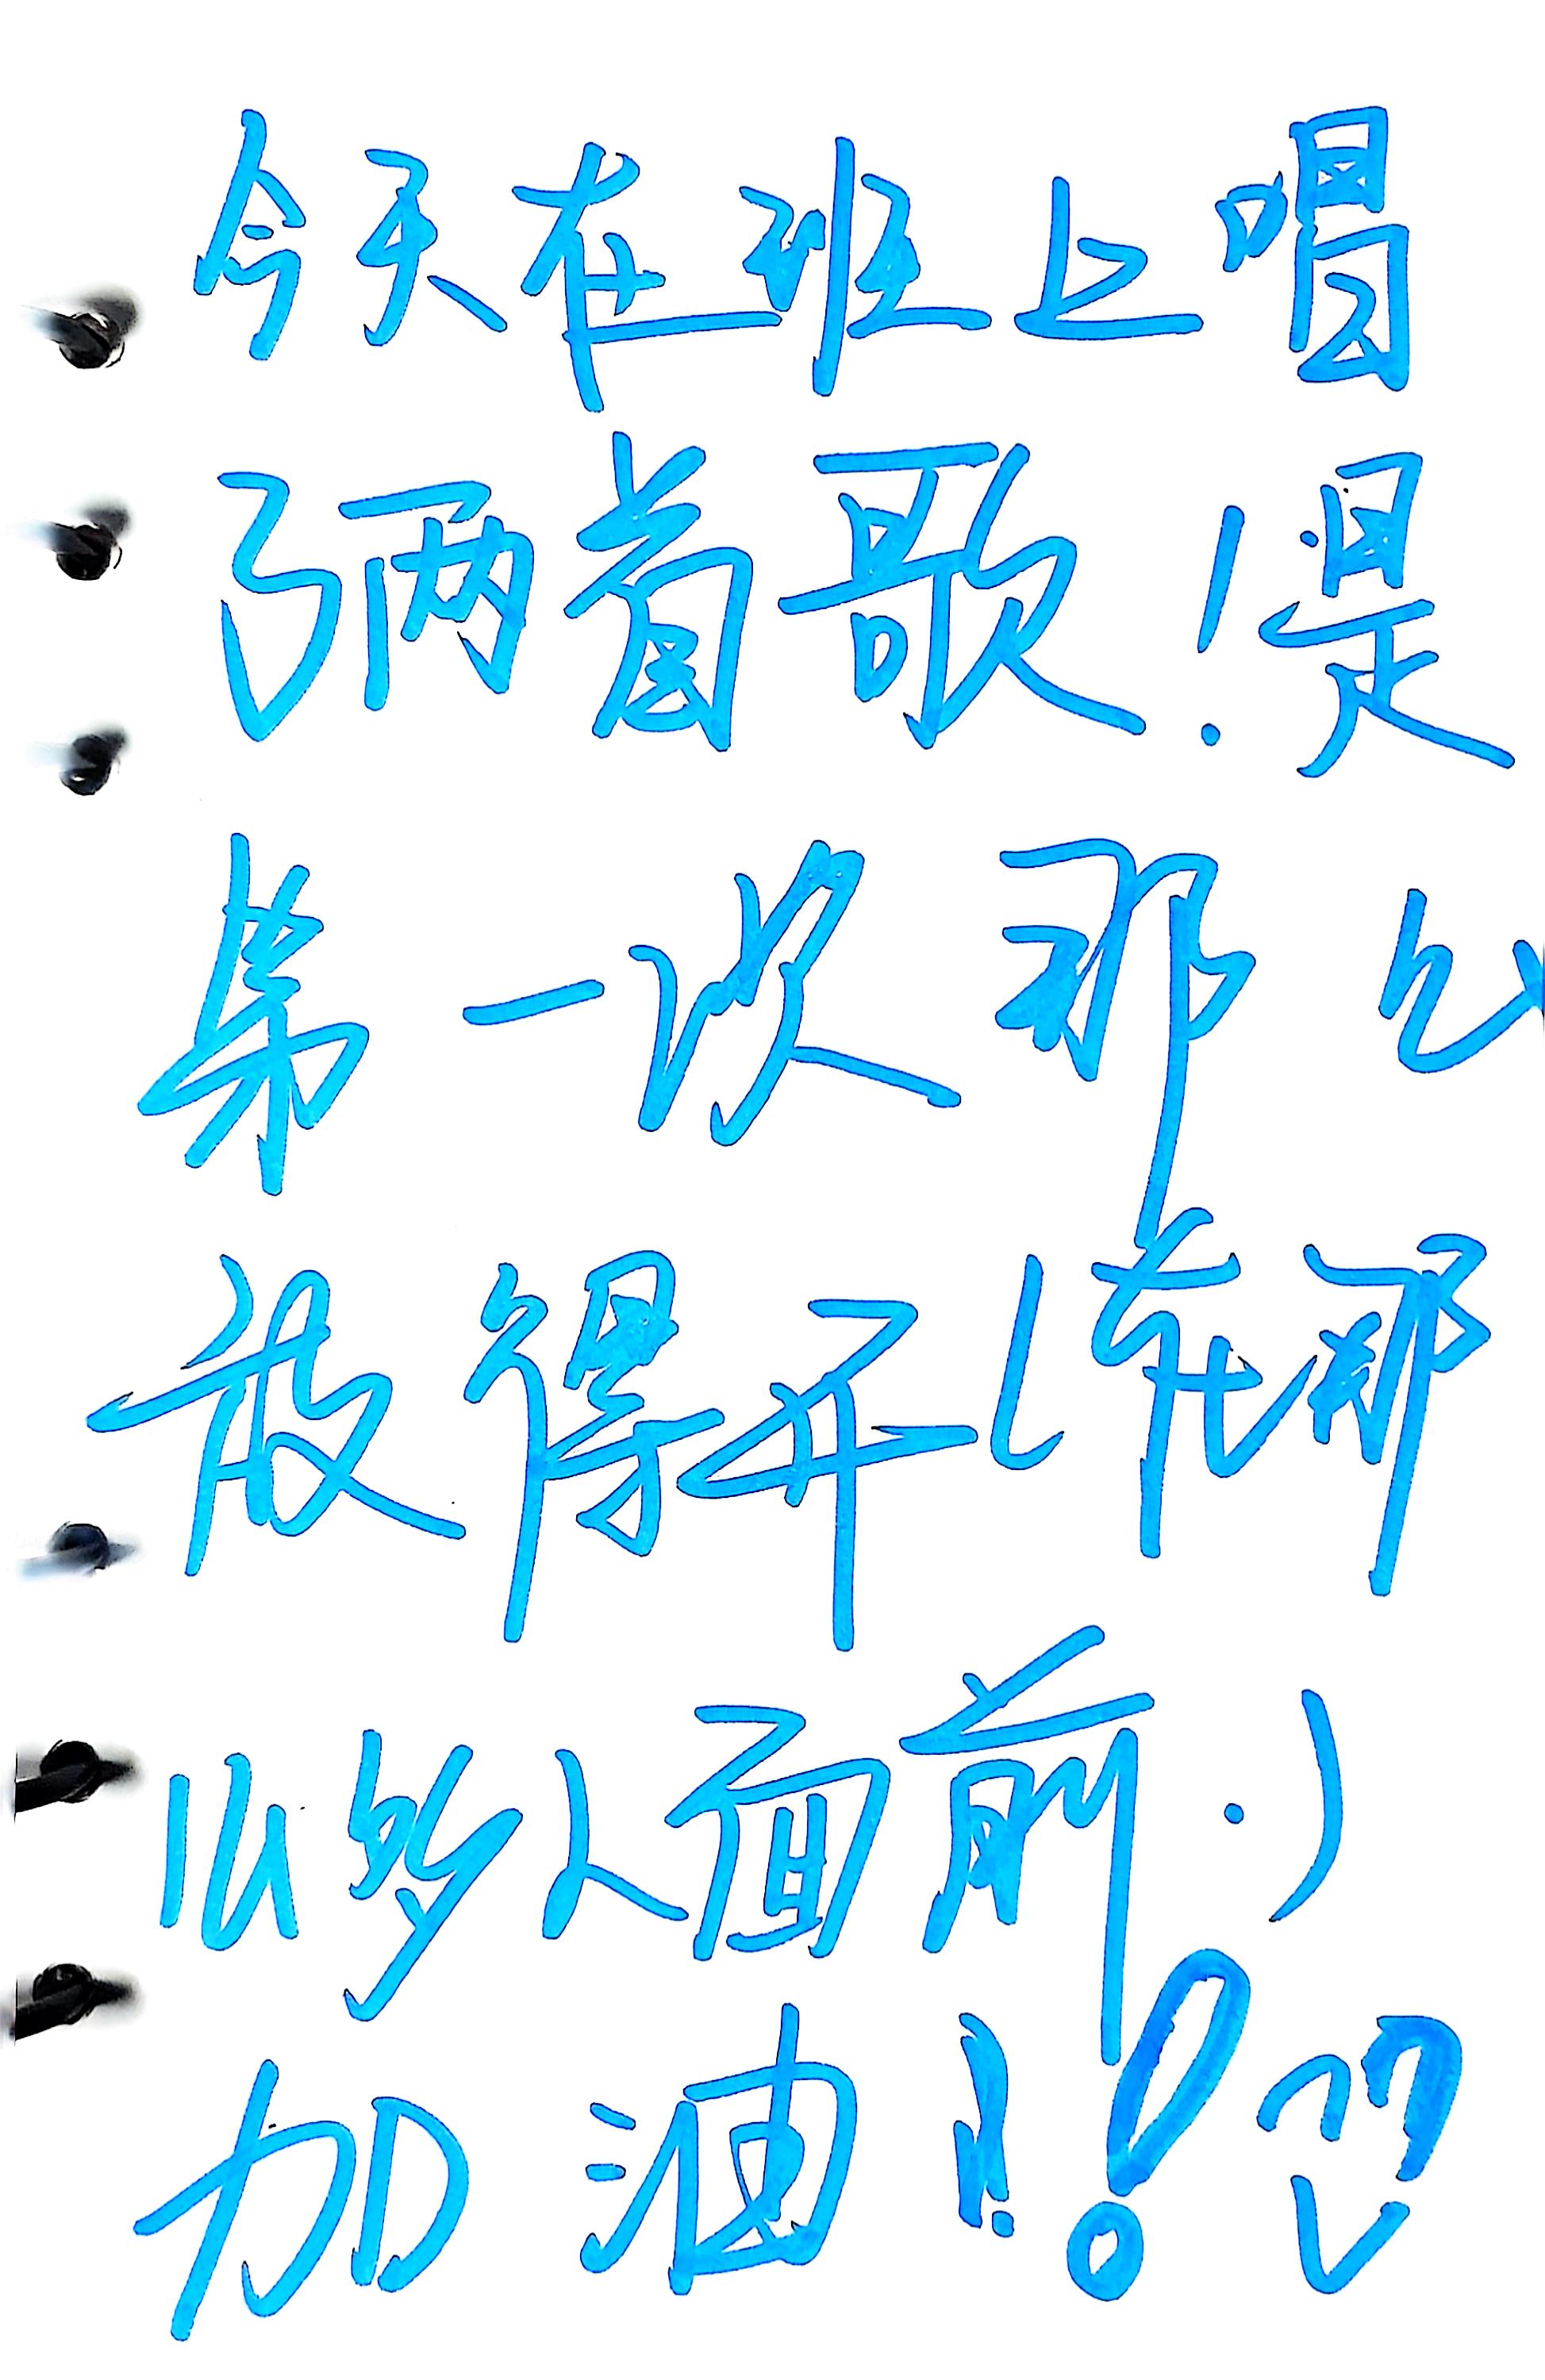 今天在班上唱
了两首歌！是
第一次那么
放得开（在那
么多人面前.）
加油！！